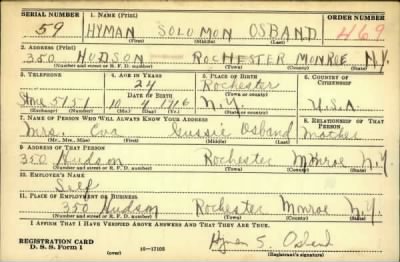 SERIAL NUMBER 1. NAME (Print) ORDER NUMBER
59 HYMAN SOLOMON OSBAND 469
(First) (Middle) (Last)
2. ADDRESS (Print)
350 HUDSON ROCHESTER MONROE N.Y.
(Number and street or R. F. D. number) (Town) (County) (State)
3. TELEPHONE 4. AGE IN YEARS 5. PLACE OF BIRTH 6. COUNTRY OF CITIZENSHIP
24 Rochester
DATE OF BIRTH (Town or county)
Stone 5151 10 4 1916 N.Y. U.S.A
(Exchange) (Number) (Mo.) (Day) (Yr.) (State or country)
7. NAME OF PERSON WHO WILL ALWAYS KNOW YOUR ADDRESS 8. RELATIONSHIP OF THAT PERSON
Mrs. Eva Gussie Osband Mother
(Mr., Mrs., Miss) (First) (Middle) (Last)
9. ADDRESS OF THAT PERSON
350 Hudson Rochester Monroe N.Y
(Number and street or R. F. D. number) (Town) (County) (State)
10. EMPLOYER'S NAME
Self
11. PLACE OF EMPLOYMENT OR BUSINESS
350 Hudson Rochester Monroe N.Y.
(Number and street or R. F. D. number) (Town) (County) (State)
I AFFIRM THAT I HAVE VERIFIED ABOVE ANSWERS AND THAT THEY ARE TRUE.
REGISTRATION CARD
D. S. S. Form 1 16—17105 Hyman S. Osband
(over) (Registrant's signature)